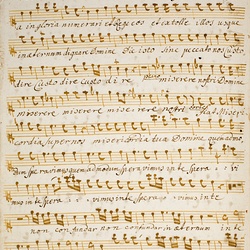 in gloria numerari et rege eos et extolle illos usque
in æternum dignare Domine die isto sine peccato nos Custo
dire Custo dire Custo di re miserere nostri Domine
miserere miserere mise rere nostri fiat Miseri
cordia super nos miseri Domine quemadmo
dum spe ravimus quemadmodum speravimus in te spera vi
mus in te spera vimus in te
non con fundar non confundar in æternum in te